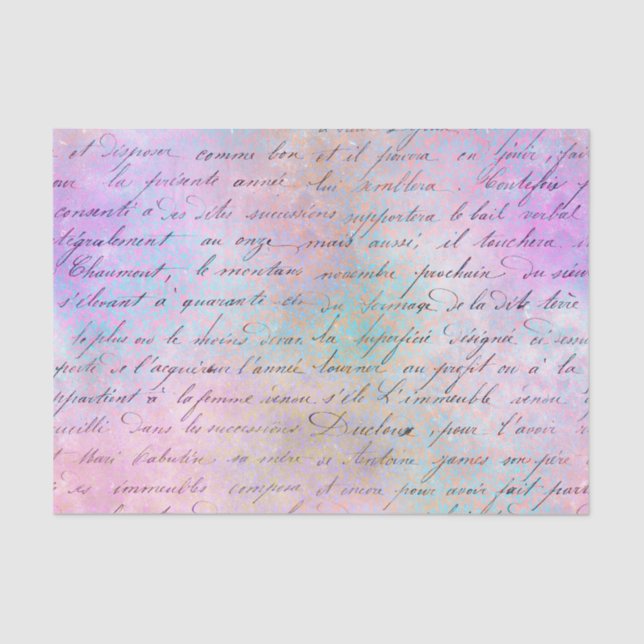 et disposer comme bon et il pourra en jouir, fai
our la présente année lui semblera. Toutefois
consenti à des dites successions supportera le bail verbal
tégralement au onze mais aussi, il touchera
Chaumont, le montant novembre prochain du sieu
s'élevant à quarante du fermage de la dite terre
le plus ou le moins devan la superficie désignée ci
perte de l'acquéreur l'année tourner au profit ou à la
appartient à la femme venou s'éle L'immeuble venou
ueilli dans les successions Ducloux, pour l'avoir
et Mari Cabutin, sa mère de Antoine James son père
des immeubles composa et encore pour avoir fait part